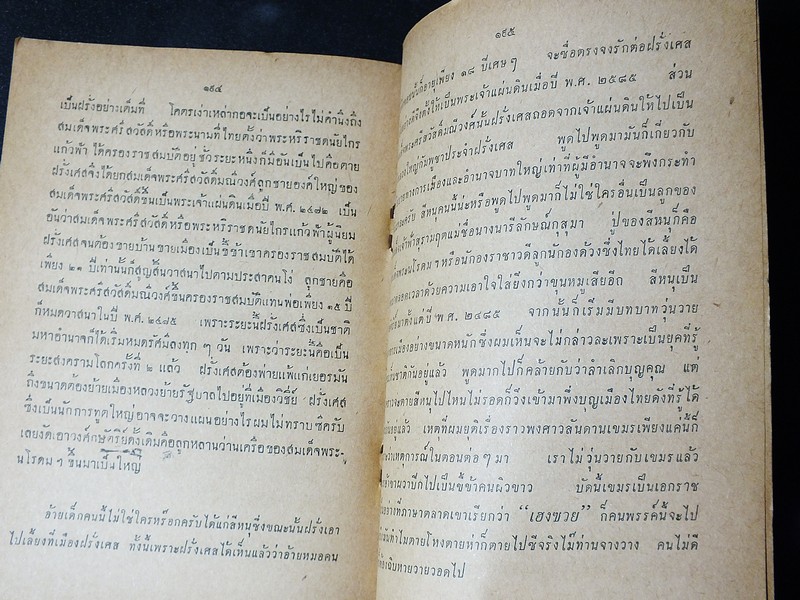 ๑๙๔
เป็นฝรั่งอย่างเต็มที่ โคตรเง่าเหล่ากอจะเป็นอย่างไรไม่คำนึงถึง
สมเด็จพระศรีสวัสดิ์หรือพระนามที่ไทยตั้งว่าพระหริราชดนัยไกร
แก้วฟ้า ได้ครองราชสมบัติอยู่ชั่วระยะหนึ่งก็มีอันเป็นไปคือตาย
ฝรั่งเศสจึงได้ยกสมเด็จพระศรีสวัสดิ์มณีวงศ์ลูกชายองค์ใหญ่ของ
สมเด็จพระศรีสวัสดิ์ขึ้นเป็นพระเจ้าแผ่นดินเมื่อปี พ.ศ. ๒๔๗๒ เป็น
อันว่าสมเด็จพระศรีสวัสดิ์หรือพระหริราชดนัยไกรแก้วฟ้าผู้นิยม
ฝรั่งเศสจนต้องขายบ้านขายเมืองเป็นขี้ข้าเขาครองราชสมบัติได้
เพียง ๒๑ ปีเท่านั้นก็สูญสิ้นวาสนาไปตามประสาคนโง่ ลูกชายคือ
สมเด็จพระศรีสวัสดิ์มณีวงศ์ขึ้นครองราชสมบัติแทนพ่อเพียง ๑๕ ปี
ก็หมดวาสนาในปี พ.ศ. ๒๔๘๕ เพราะระยะนี้ฝรั่งเศสซึ่งเป็นชาติ
มหาอำนาจก็ได้เริ่มหมดรัศมีลงทุก ๆ วัน เพราะว่าระยะนี้คือเป็น
ระยะสงครามโลกครั้งที่ ๒ แล้ว ฝรั่งเศสต้องพ่ายแพ้แก่เยอรมัน
ถึงขนาดต้องย้ายเมืองหลวงย้ายรัฐบาลไปอยู่ที่เมืองวิชี่ย์ ฝรั่งเศส
ซึ่งเป็นนักการทูตใหญ่อาจจะวางแผนอย่างไรผมไม่ทราบซิครับ
เลยงัดเอาวงศ์กษัตริย์ดั้งเดิมคือลูกหลานว่านเครือของสมเด็จพระ-
นโรดม ฯ ขึ้นมาเป็นใหญ่
อ้ายเด็กคนนี้ไม่ใช่ใครหร็อกครับได้แก่สีหนุซึ่งขณะนั้นฝรั่งเอา
ไปเลี้ยงที่เมืองฝรั่งเศส ทั้งนี้เพราะฝรั่งเศสได้เห็นแล้วว่าอ้ายหมอคน
๑๙๕
นี้ก็อายุเพียง ๑๘ ปีเศษ ๆ จะซื่อตรงจงรักต่อฝรั่งเศส
จึงตั้งให้เป็นพระเจ้าแผ่นดินเมื่อปี พ.ศ. ๒๔๘๕ ส่วน
พระศรีสวัสดิ์มณีวงศ์นั้นฝรั่งเศสถอดจากเจ้าแผ่นดินให้ไปเป็น
ใหญ่กัมพูชาประจำฝรั่งเศส พูดไปพูดมามันก็เกี่ยวกับ
ทางการเมืองและอำนาจบาทใหญ่เท่าที่ผู้มีอำนาจจะพึงกระทำ
สีหนุคนนี้น่ะหรือพูดไปพูดมาก็ไม่ใช่ใครอื่นเป็นลูกของ
เจ้าฟ้าสุรามฤตแม่ชื่อนางนารีลักษณ์กุสุมา ปู่ของสีหนุก็คือ
นโรดม ฯ หรือนักองราชาวดีลูกนักองด้วงซึ่งไทยได้เลี้ยงได้
ตลอดเวลาด้วยความเอาใจใส่ยิ่งกว่าขุนหมูเสียอีก สีหนุเป็น
มาตั้งแต่ปี พ.ศ. ๒๔๘๕ จากนั้นก็เริ่มมีบทบาทวุ่นวาย
การเมืองอย่างขนาดหนักซึ่งผมเห็นจะไม่กล่าวละเพราะเป็นยุคที่รู้
ชาติกันอยู่แล้ว พูดมากไปก็คล้ายกับว่าลำเลิกบุญคุณ แต่
จะตายสีหนุไปไหนไม่รอดก็วิ่งเข้ามาพึ่งบุญเมืองไทยดังที่รู้ได้
อยู่แล้ว เหตุที่ผมยุติเรื่องราวพงศาวลันดานเขมรเพียงแค่นี้ก็
เหตุการณ์ในตอนต่อ ๆ มา เราไม่วุ่นวายกับเขมรแล้ว
เขาผวาปีกไปเป็นขี้ข้าคนผิวขาว บัดนี้เขมรเป็นเอกราช
อย่างที่ภาษาตลาดเขาเรียกว่า “เฮงซวย” ก็คนพรรค์นี้จะไป
ทำไมตายโหงตายห่าก็ตายไปซีจริงไม๊ท่านจางวาง คนไม่ดี
ต้องฉิบหายวายวอดไป